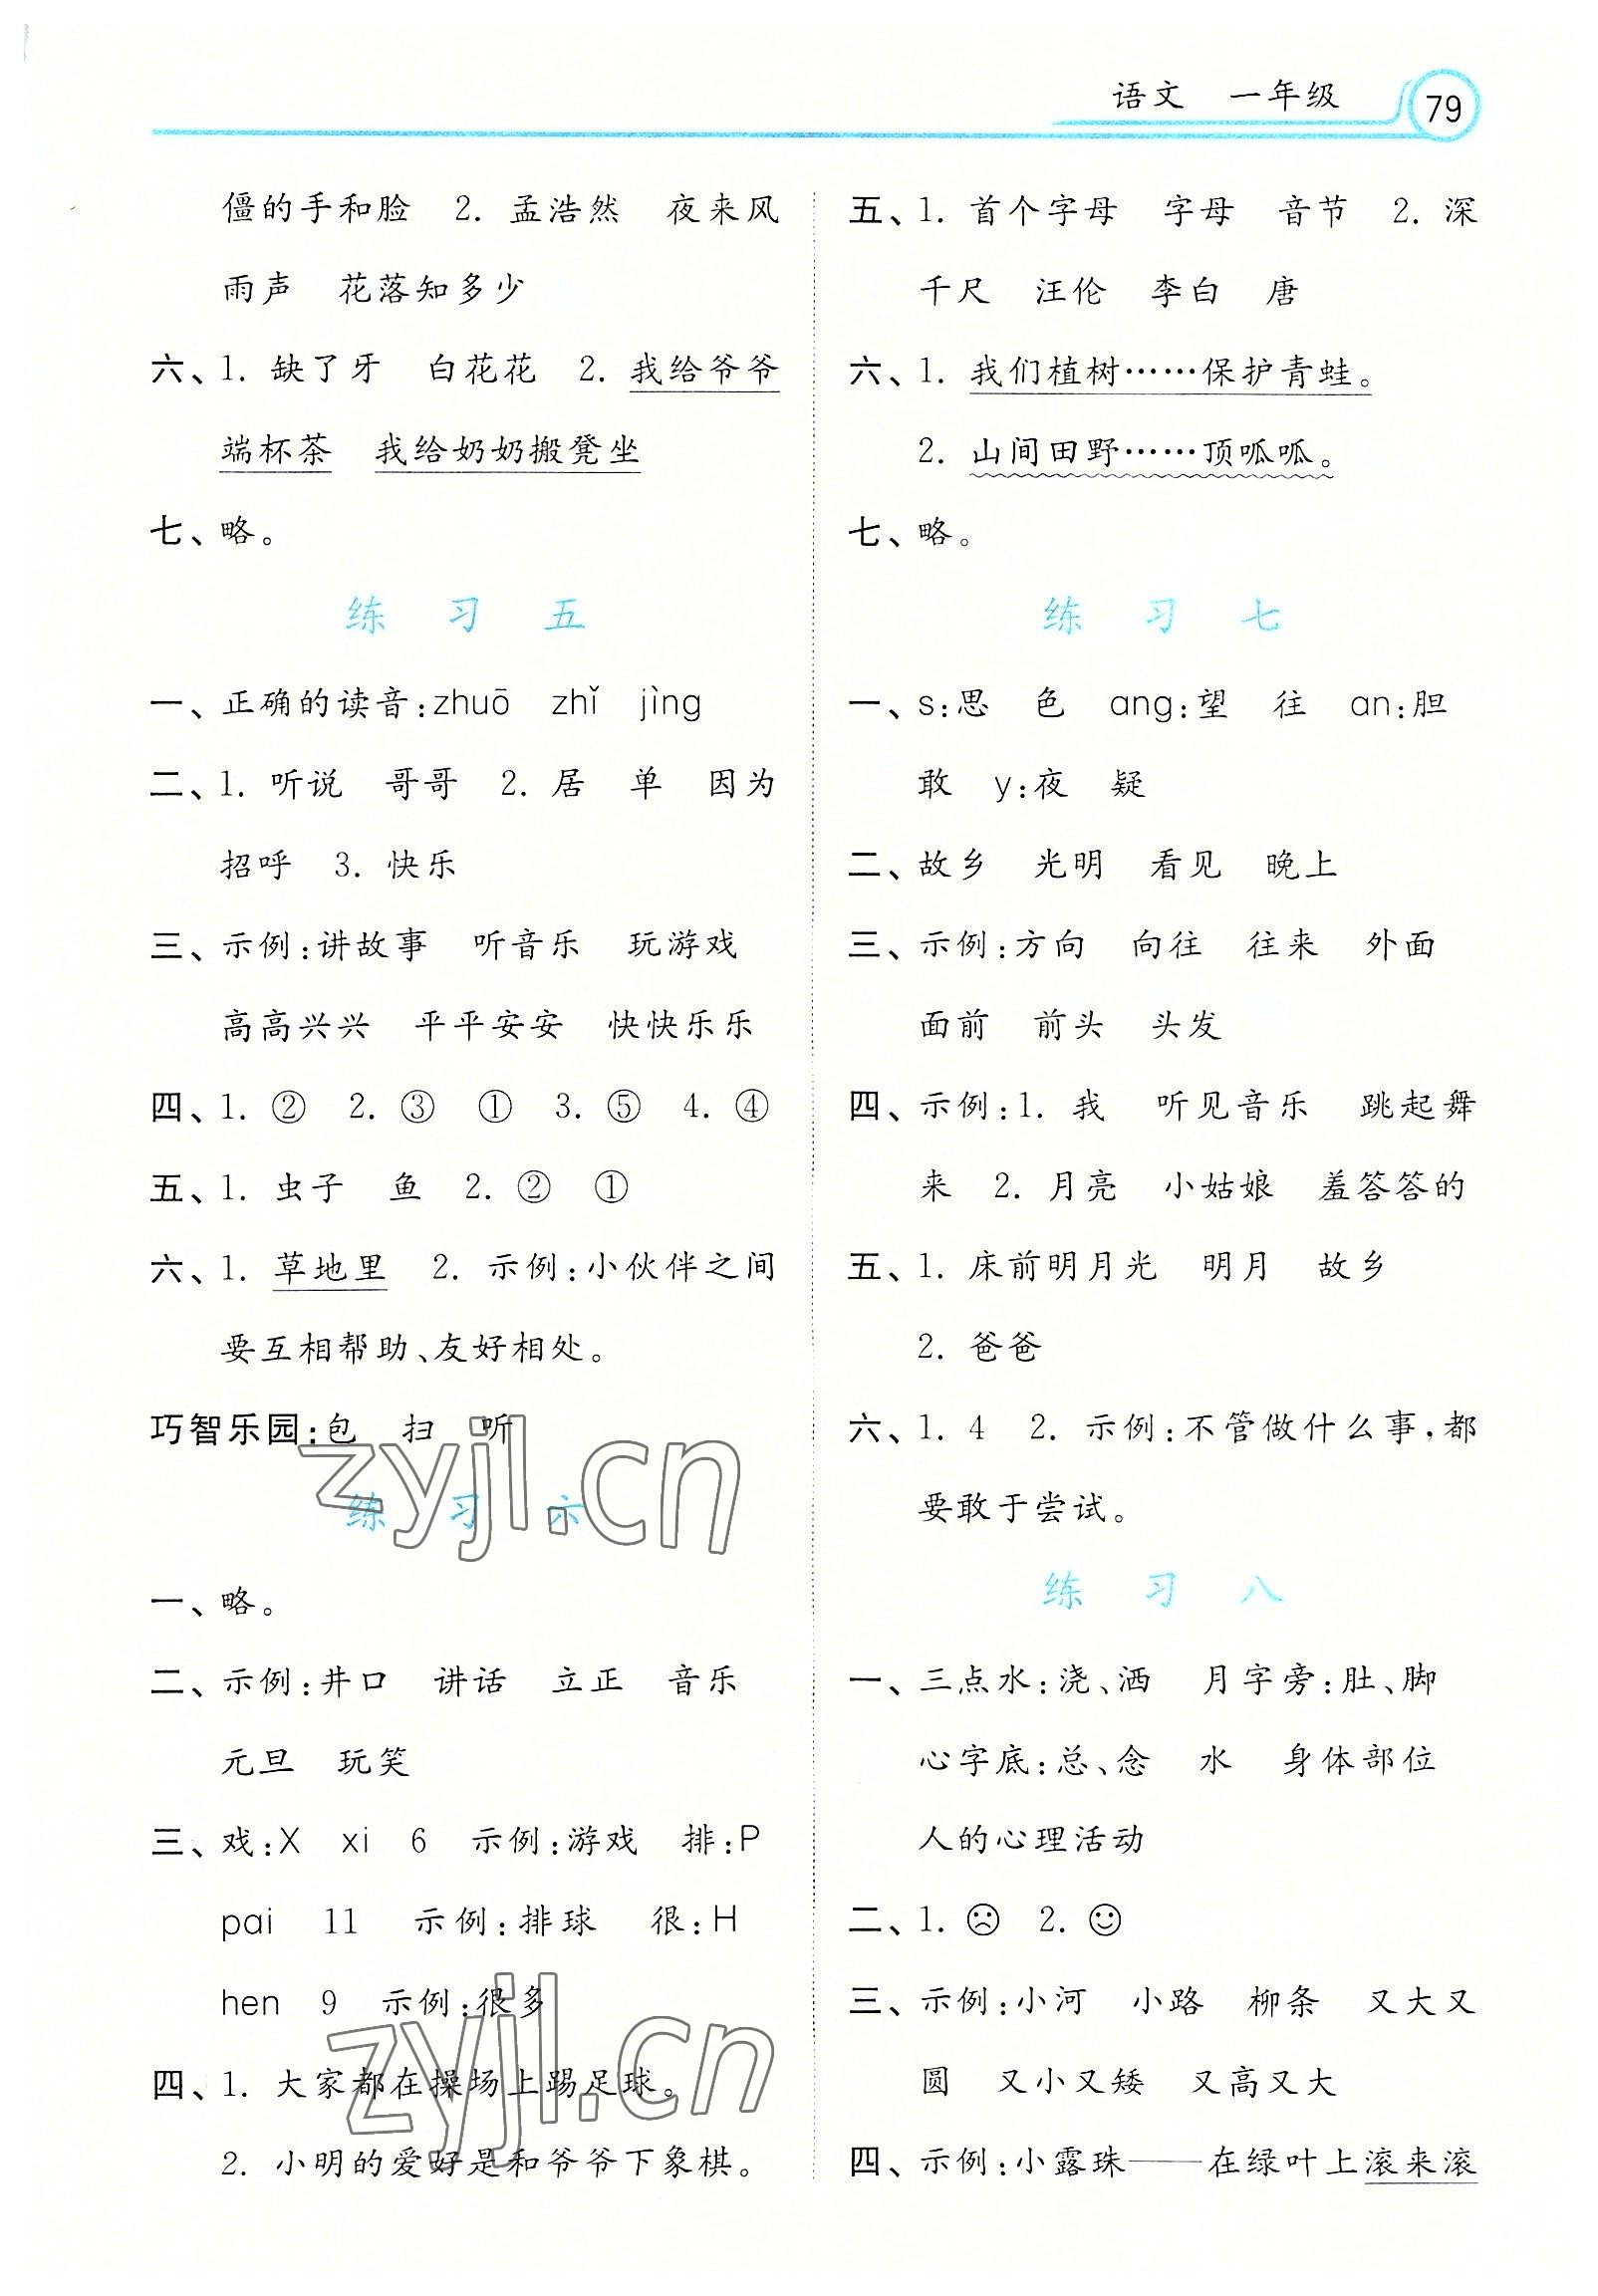 语文 一年级 79
僵的手和脸 2. 孟浩然 夜来风
雨声 花落知多少
六、1. 缺了牙 白花花 2. 我给爷爷
端杯茶 我给奶奶搬凳坐
七、略。
练 习 五
一、正确的读音:zhuō zhǐ jìng
二、1. 听说 哥哥 2. 居 单 因为
招呼 3. 快乐
三、示例:讲故事 听音乐 玩游戏
高高兴兴 平平安安 快快乐乐
四、1. ② 2. ③ ① 3. ⑤ 4. ④
五、1. 虫子 鱼 2. ② ①
六、1. 草地里 2. 示例:小伙伴之间
要互相帮助、友好相处。
巧智乐园:包 扫 听
练 习 六
zyjl.cn
一、略。
二、示例:井口 讲话 立正 音乐
元旦 玩笑
三、戏:X xi 6 示例:游戏 排:P
pai 11 示例:排球 很:H
hen 9 示例:很多
四、1. 大家都在操场上踢足球。
zyjl.cn
2. 小明的爱好是和爷爷下象棋。
五、1. 首个字母 字母 音节 2. 深
千尺 汪伦 李白 唐
六、1. 我们植树……保护青蛙。
2. 山间田野……顶呱呱。
七、略。
练 习 七
一、s:思 色 ang:望 往 an:胆
敢 y:夜 疑
二、故乡 光明 看见 晚上
三、示例:方向 向往 往来 外面
面前 前头 头发
四、示例:1. 我 听见音乐 跳起舞
来 2. 月亮 小姑娘 羞答答的
五、1. 床前明月光 明月 故乡
2. 爸爸
六、1. 4 2. 示例:不管做什么事,都
要敢于尝试。
练 习 八
一、三点水:浇、洒 月字旁:肚、脚
心字底:总、念 水 身体部位
人的心理活动
二、1. ☹ 2. ☺
三、示例:小河 小路 柳条 又大又
圆 又小又矮 又高又大
四、示例:小露珠——在绿叶上滚来滚